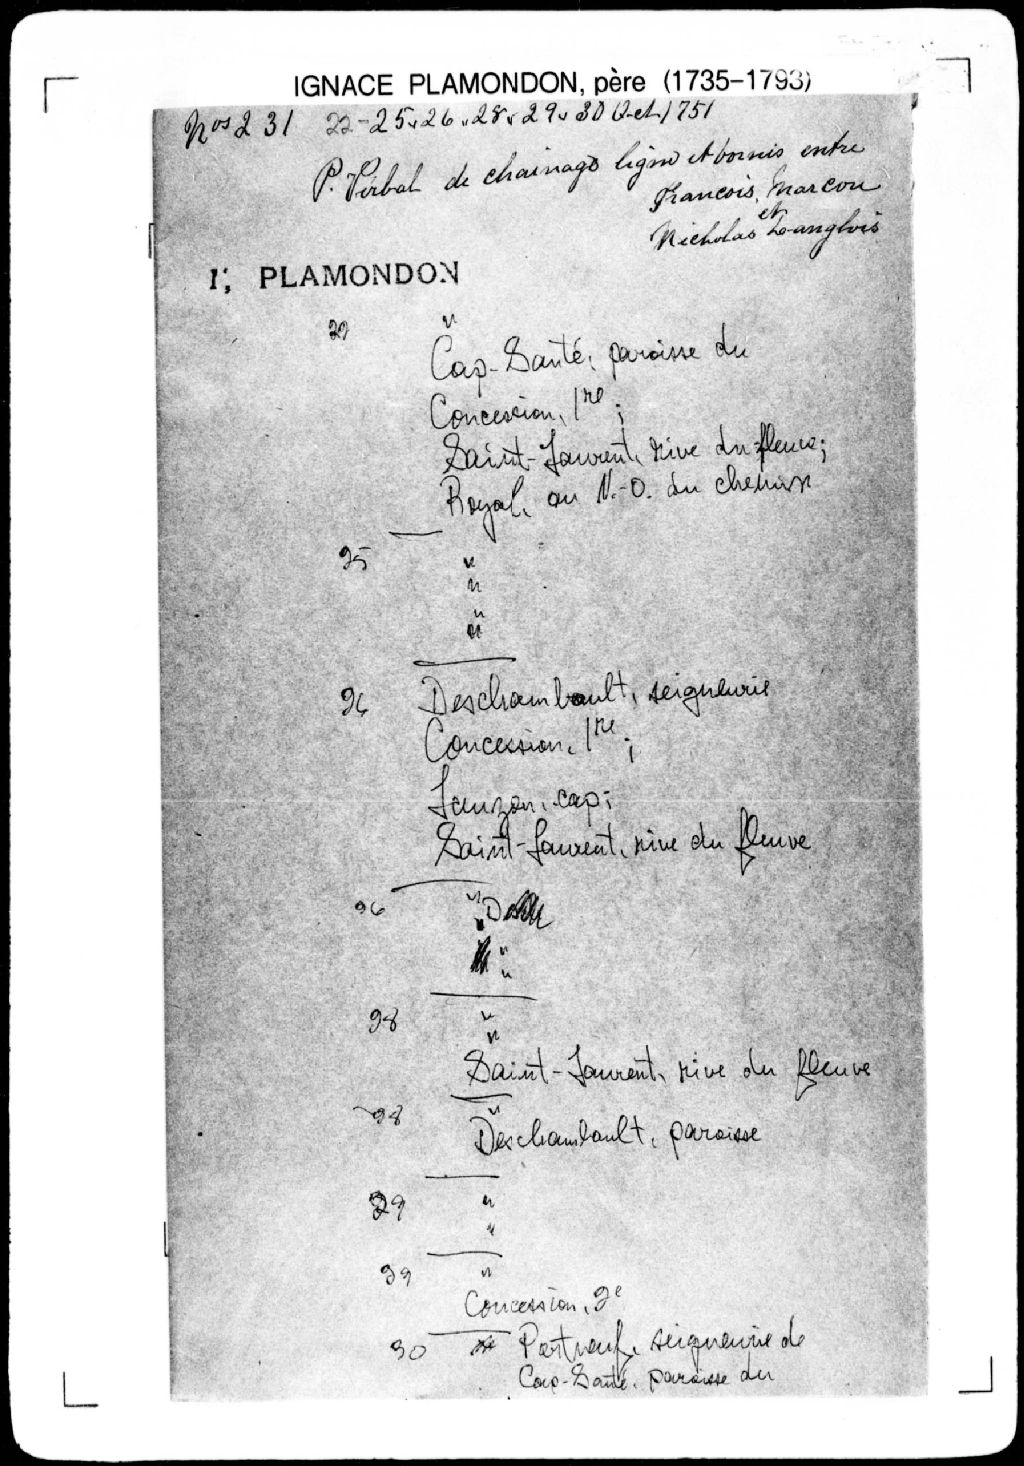 IGNACE PLAMONDON, père (1735-1793)
Nos 231 22-25, 26, 28, 29, 30 Oct. 1751
P. Verbal de chainage ligne et bornis entre
Francois, Marcou
et
Nicholas Langlois
I; PLAMONDON
22 "
Cap-Santé, paroisse du
Concession, 1re;
Saint-Laurent, rive du fleuve;
Royal, au N.-O. du chemin
25 "
"
"
"
26 Deschambault, seigneurie
Concession, 1re;
Lauzon, cap;
Saint-Laurent, rive du fleuve
26 "
"
"
"
28 "
"
Saint-Laurent, rive du fleuve
28 "
Deschambault, paroisse
29 "
"
29 "
Concession, 2e
30 Portneuf, seigneurie de
Cap-Santé, paroisse du